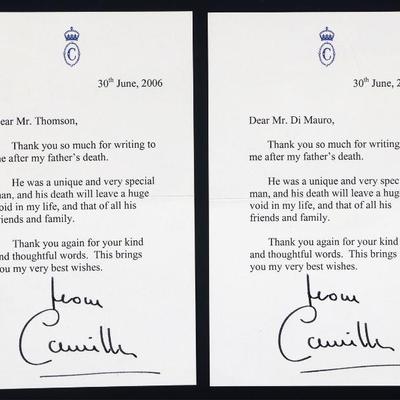 C
30th June, 2006
ear Mr. Thomson,
Thank you so much for writing to
me after my father's death.
He was a unique and very special
man, and his death will leave a huge
void in my life, and that of all his
friends and family.
Thank you again for your kind
and thoughtful words. This brings
you my very best wishes.
from
Camilla
C
30th June, 2
Dear Mr. Di Mauro,
Thank you so much for writing to
me after my father's death.
He was a unique and very special
man, and his death will leave a huge
void in my life, and that of all his
friends and family.
Thank you again for your kind
and thoughtful words. This brings
you my very best wishes.
from
Camilla